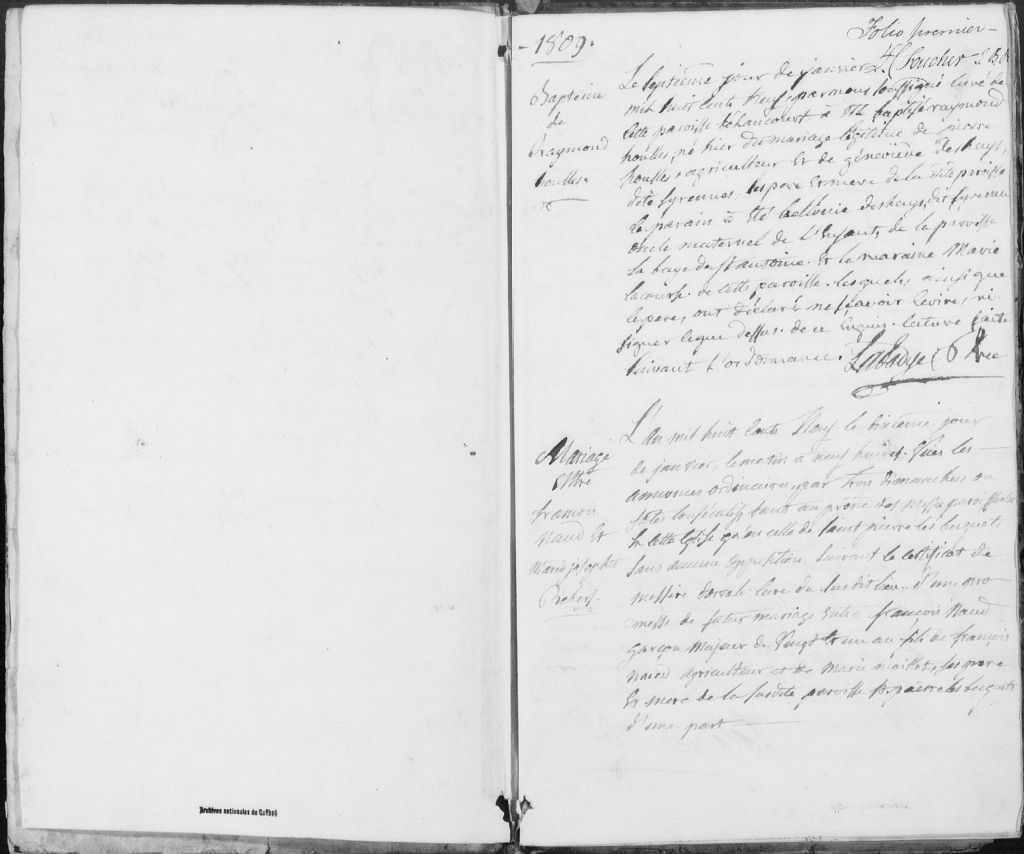 Folio premier
- 1809 -
Baptême
de
Raymond
houlles
Le septième jour de janvier
mil huit cents Neuf, par nous soussigné curé de
cette paroisse béhancourt à été baptisé raymond
houlles, né hier du mariage légitime de pierre
houlles agriculteur Et de géneviève deshays,
dite syrennes, ses pere Et mere de la dite paroisse
le parain à été deshays, dit
oncle maternel de L'Enfant, de la paroisse
la baye du st antoine. Et la maraine Marie
lacourse de cette paroisse. lesquels, ainsi que
le pere, ont déclaré ne sçavoir Ecrire, ni
signer lequel dessus. de ce Enquis. lecture faite
suivant L'ordonnance.
Mariage
Entre
françois
Naud Et
Marie josephte
L'an mil huit cents Neuf le dixième jour
de janvier, le matin à neuf heures. Vues les
annonces ordinaires, par trois dimanches ou
fêtes consécutifs tant au prône des messes paroissiales
de cette Eglise qu'en celle de saint pierre les becquets
sans aucune opposition, suivant le certificat de
messire curé du susdit lieu. d'une pro
messe de futur mariage Entre françois Naud
garçon Majeur de Vingt Et un an fils de françois
Naud agriculteur et de Marie maillot, ses pere
Et mere de la susdite paroisse st pierre les becquets
d'une part
Archives nationales du Québec